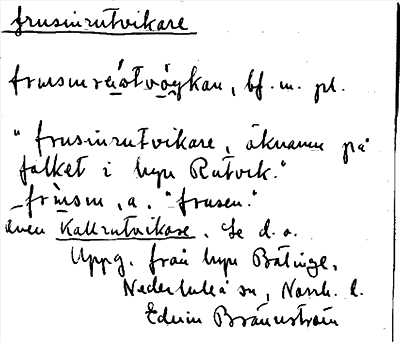 frusinrutvikare
frusinrutvöykan, bf. m. pl.
"frusinrutvikare, öknamn på
folket i byn Rutvik."
frùsin, a. "frusen."
även Kallrutvikare. Se d. o.
Uppg. från byn Bälinge,
Nederluleå sn, Norrb. l.
Edvin Brännström